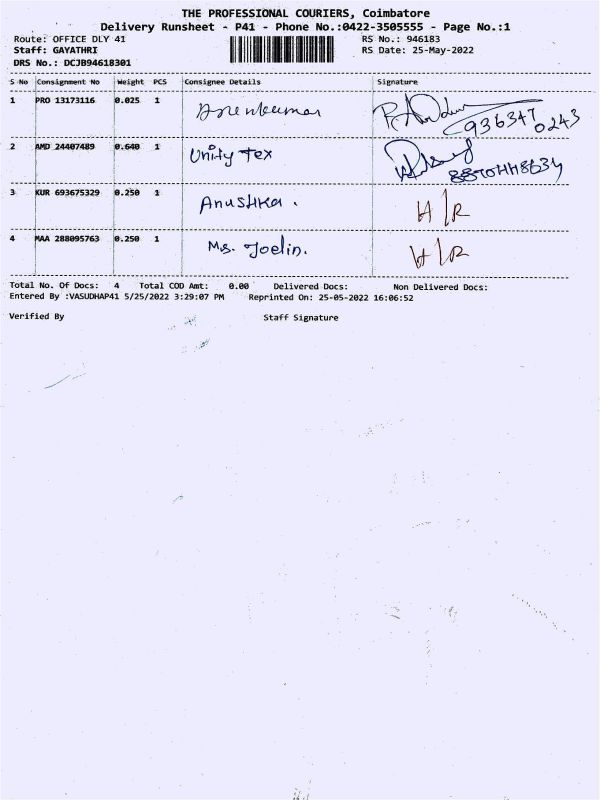 THE PROFESSIONAL COURIERS, Coimbatore
Delivery Runsheet - P41 - Phone No.:0422-3505555 - Page No.:1
Route: OFFICE DLY 41 RS No.: 946183
Staff: GAYATHRI RS Date: 25-May-2022
DRS No.: DCJB94618301
S No Consignment No Weight PCS Consignee Details Signature
1 PRO 13173116 0.025 1
936347
0243
2 AMD 24407489 0.640 1 Unity Tex
3 KUR 693675329 0.250 1 Anushka . H/R
4 MAA 288095763 0.250 1 Ms. Joelin. H/R
Total No. Of Docs: 4 Total COD Amt: 0.00 Delivered Docs: Non Delivered Docs:
Entered By :VASUDHAP41 5/25/2022 3:29:07 PM Reprinted On: 25-05-2022 16:06:52
Verified By Staff Signature